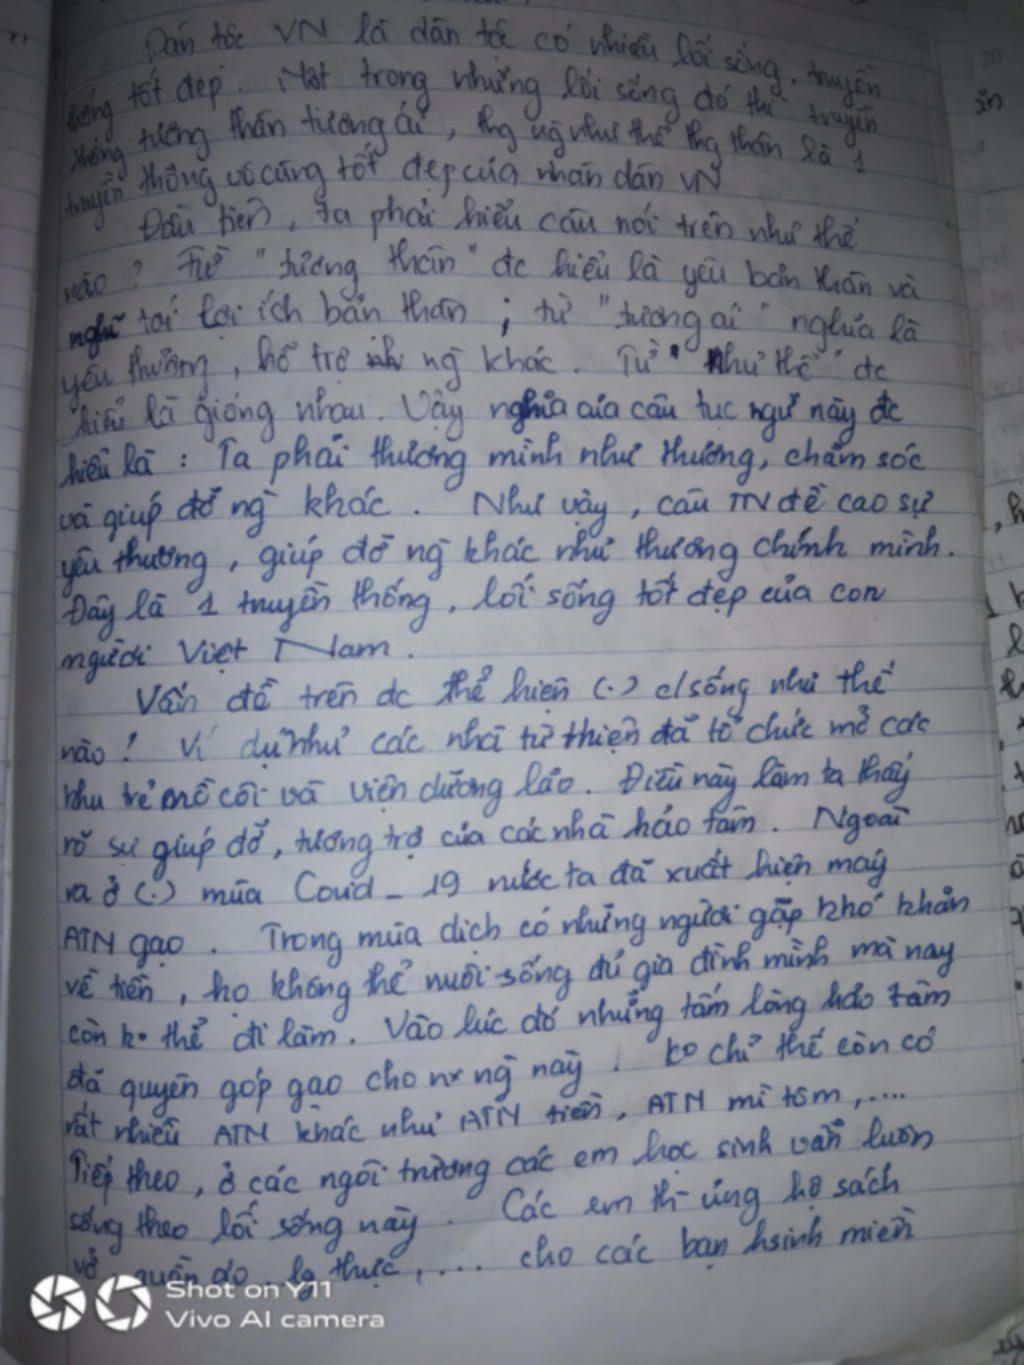 Dân tộc VN là dân tộc có nhiều lối sống, truyền
thống tốt đẹp. Một trong những lối sống đó thì truyền
thống tương thân tương ái, thg ng như thể thg thân là 1
truyền thống vô cùng tốt đẹp của nhân dân VN
Đầu tiên, ta phải hiểu câu nói trên như thế
nào? Từ "tương thân" đc hiểu là yêu bản thân và
nghĩ tới lợi ích bản thân; từ "tương ái" nghĩa là
yêu thương, hỗ trợ ng khác. Từ "như thể" đc
hiểu là giống nhau. Vậy nghĩa của câu tục ngữ này đc
hiểu là: Ta phải thương mình như thương, chăm sóc
và giúp đỡ ng khác. Như vậy, câu TN đề cao sự
yêu thương, giúp đỡ ng khác như thương chính mình.
Đây là 1 truyền thống, lối sống tốt đẹp của con
người Việt Nam.
Vấn đề trên đc thể hiện (.) c/sống như thế
nào! Ví dụ như các nhà từ thiện đã tổ chức mở các
khu trẻ mồ côi và viện dưỡng lão. Điều này làm ta thấy
rõ sự giúp đỡ, tương trợ của các nhà hảo tâm. Ngoài
ra ở (.) mùa Covid_19 nước ta đã xuất hiện máy
ATN gạo. Trong mùa dịch có những người gặp khó khăn
về tiền, họ không thể nuôi sống đủ gia đình mình mà nay
còn ko thể đi làm. Vào lúc đó những tấm lòng hảo tâm
đã quyên góp gạo cho nx ng này. ko chỉ thế còn có
rất nhiều ATN khác như ATN tiền, ATN mì tôm,....
Tiếp theo, ở các ngôi trường các em học sinh vẫn luôn
sống theo lối sống này. Các em th- ủng hộ sách
vở, quần áo, lg thực,.... cho các bạn hsinh miền
Shot on Y11
Vivo AI camera